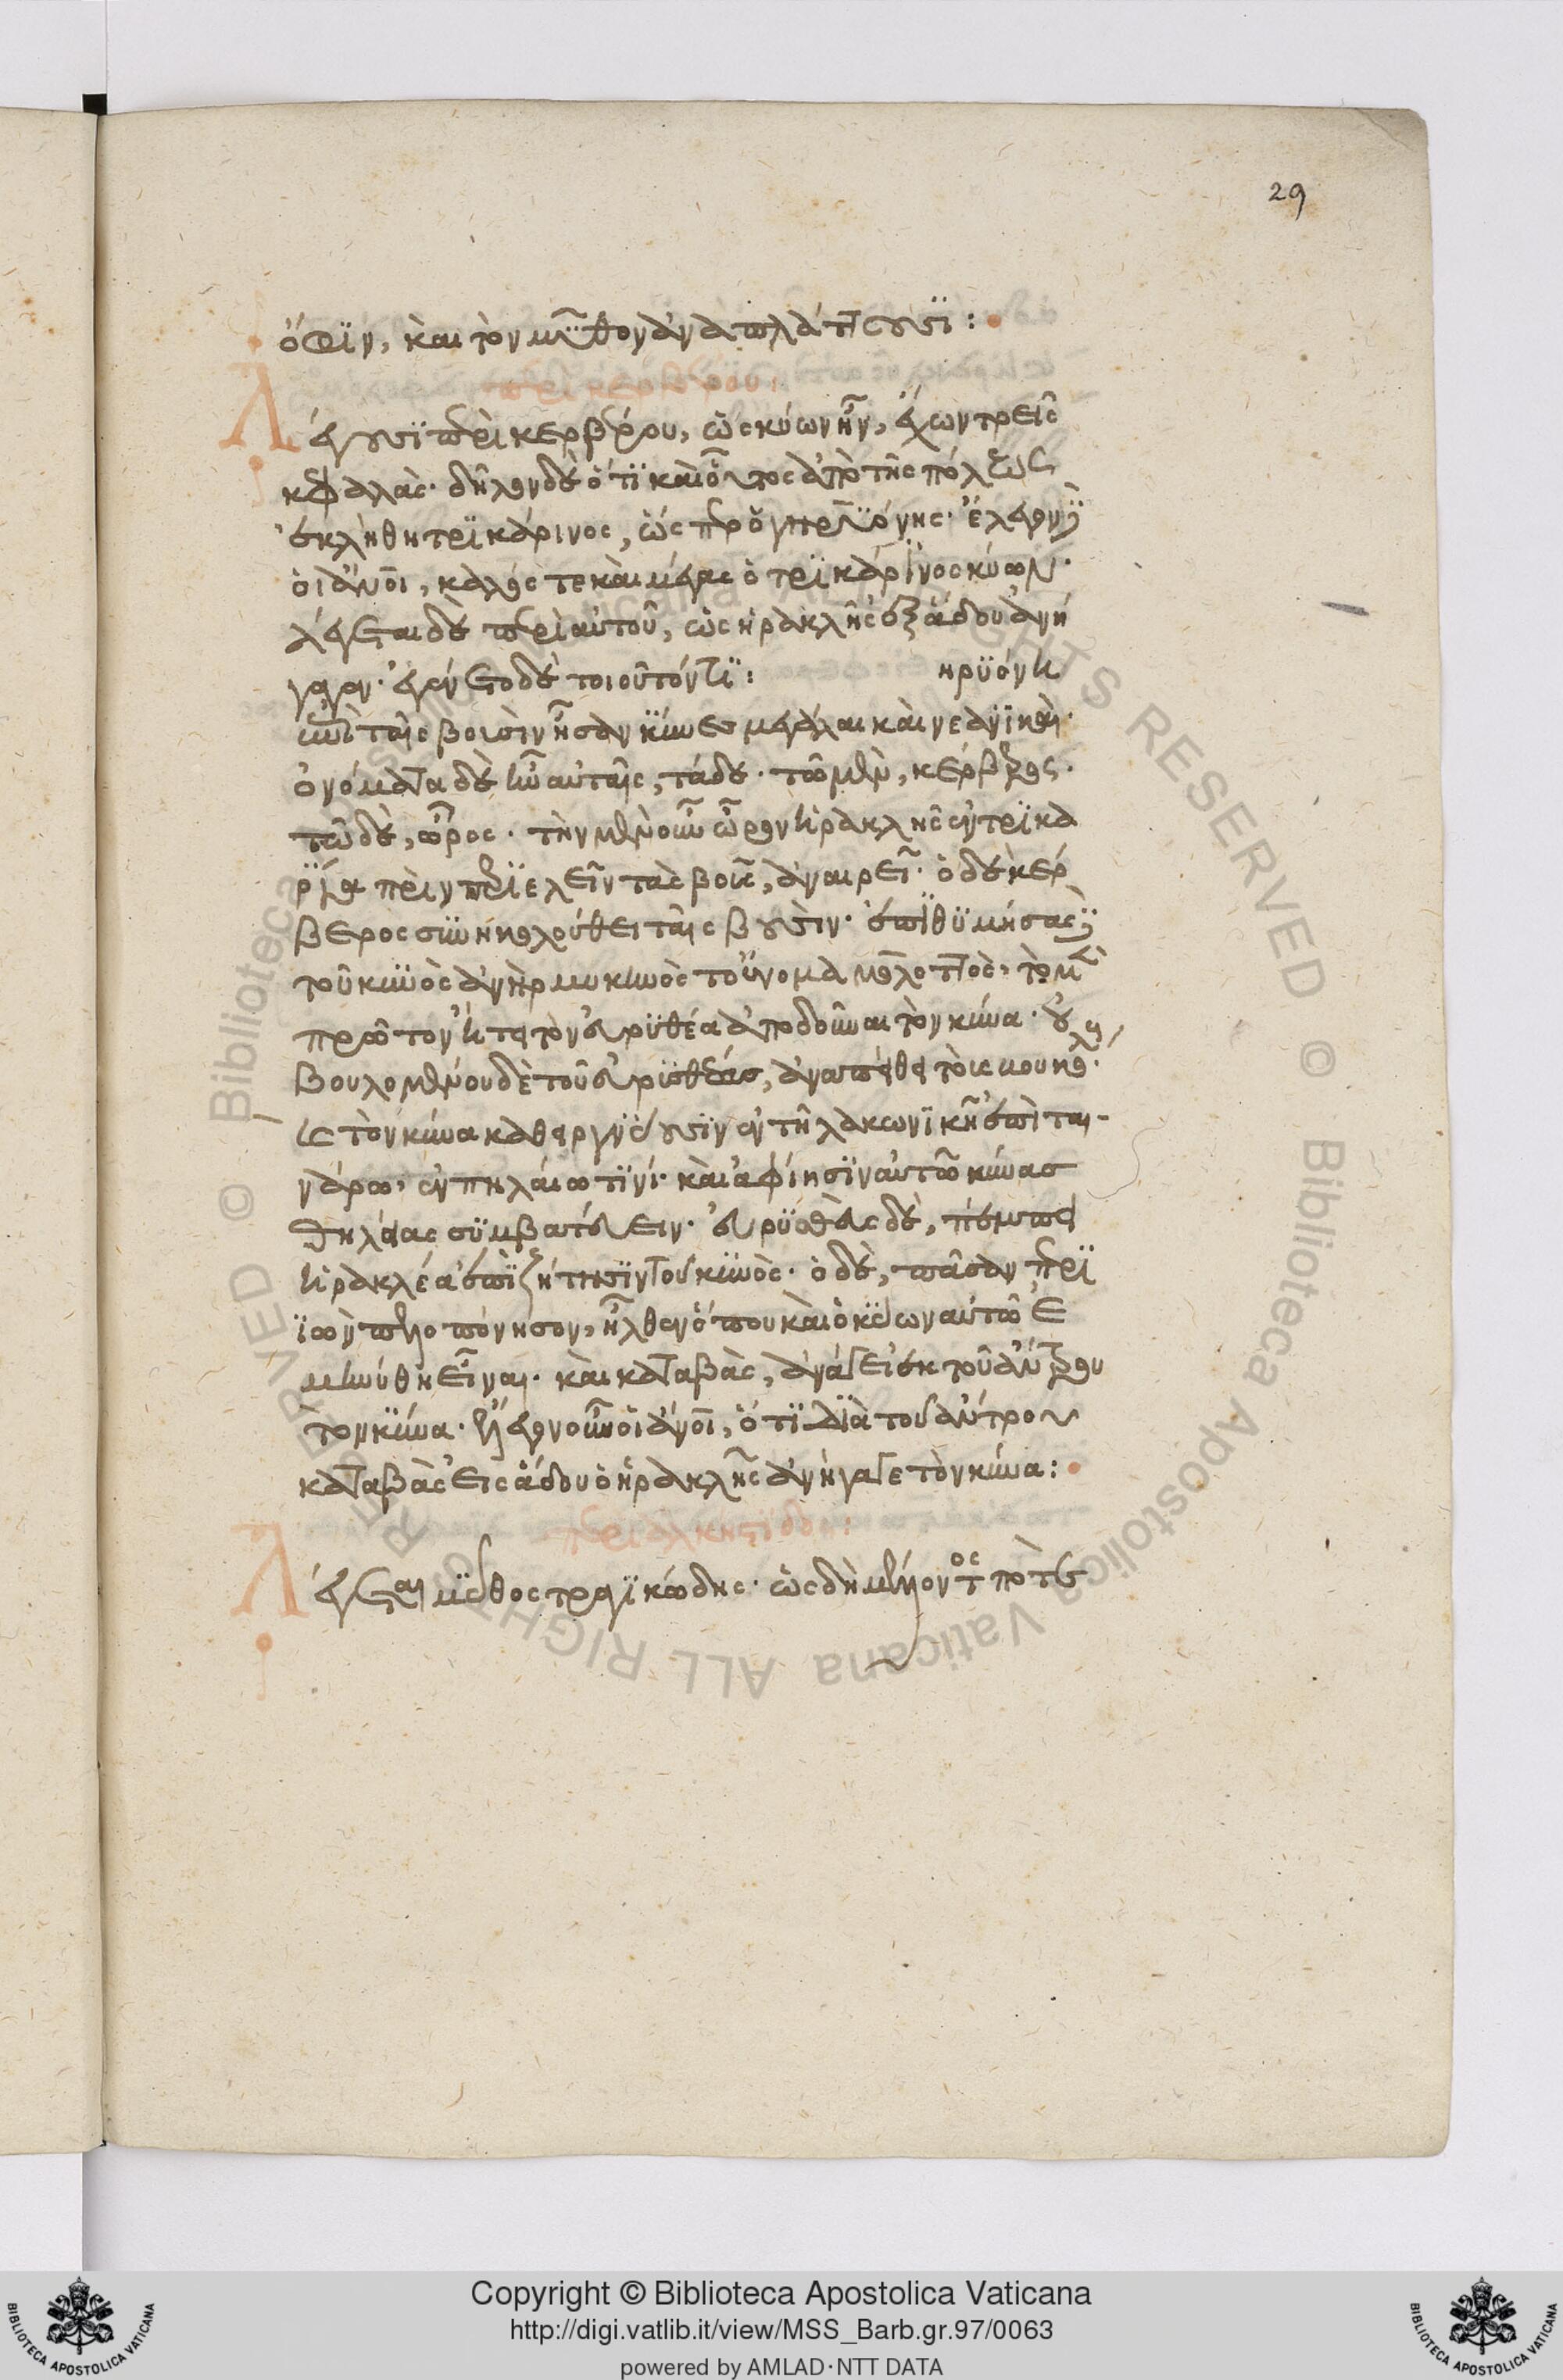 ὄφϊν, καὶ τὸν μῦθον ἀναπλάττουσϊ:
περὶ κερβέρου:
Λέγουσϊ περὶ κερβέρου, ὡς κύων ἦν, ἔχων τρεῖς
κεφαλάς· δῆλον δὲ ὅτϊ καὶ οὗτος ἀπὸ τῆς πόλεως
ἐκλήθη τρϊκάρινος, ὡς περ ὁ γηρϋόνης· ἔλεγον δὲ
οἱ ἄνοι, καλός τε καὶ μέγας ὁ τρϊκάρϊνος κύων·
λέγεται δὲ περὶ αὐτοῦ, ὡς ἡρακλῆς ἐξ ἅδου ἀνή
γαγεν· ἐγένετο δὲ τοιοῦτόν τϊ: ηρϋόνη
ἐπὶ ταῖς βουσὶν ἦσαν κύνες μεγάλαι καὶ νεανϊκαί·
ὀνόματα δὲ ἦν αὐταῖς, τάδε· τῶ μὲν, κέρβερος·
τῶ δὲ, ὦρος· τὴν μὲν οὖν ὦρον ἡρακλῆς ἐν τρϊκα
ρΐνα πρὶν περϊελεῖν τὰς βοῦς, ἀναιρεῖ· ὁ δὲ κέρ
βερος συνηκολούθει ταῖς βουσὶν· ἐπϊθϋμήσας δὲ
τοῦ κυνὸς ἀνὴρ μυκηνὸς τοὔνομα μολοττὸς, τὸ μὲν
πρῶτον ἤτει τὸν εὐρϋθέα ἀποδοῦναι τὸν κύνα· οὐ
βουλομένου δὲ τοῦ εὐρϋσθέως, ἀναπείθει τοὺς βουκό·
λους τὸν κύνα καθεργνύουσϊν ἐν τῆ λακωνϊκῆ ἐπὶ ται-
νάρω, ἐν πηλαίω τϊνί· καὶ ἀφίησϊν αὐτῶ κύνας
θηλείας συμβατεύειν· εὐρϋσθεὺς δὲ, πέμπει
ἡρακλέα ἐπϊζήτησϊν τοῦ κυνὸς· ὁ δὲ, πᾶσαν περϊ
ϊὼν πελοπόνησον, ἦλθεν ὅπου καὶ ὁ κύων αὐτῶ ἐ
μηνύθη εἶναι· καὶ καταβὰς, ἀνάγει ἐκ τοῦ ἄντρου
τὸν κύνα· ἔλεγον οὖν οἱ ἄνοι, ὅτϊ διὰ τοῦ ἄντρου
καταβὰς εἰς ἅδου ὁ ἡρακλῆς ἀνήγαγε τὸν κύνα:
περὶ ἀλκηστϊδος:
Λέγεται μῦθος τραγϊκώδης· ὡς δὴ μέλλοντος ποτὲ
29